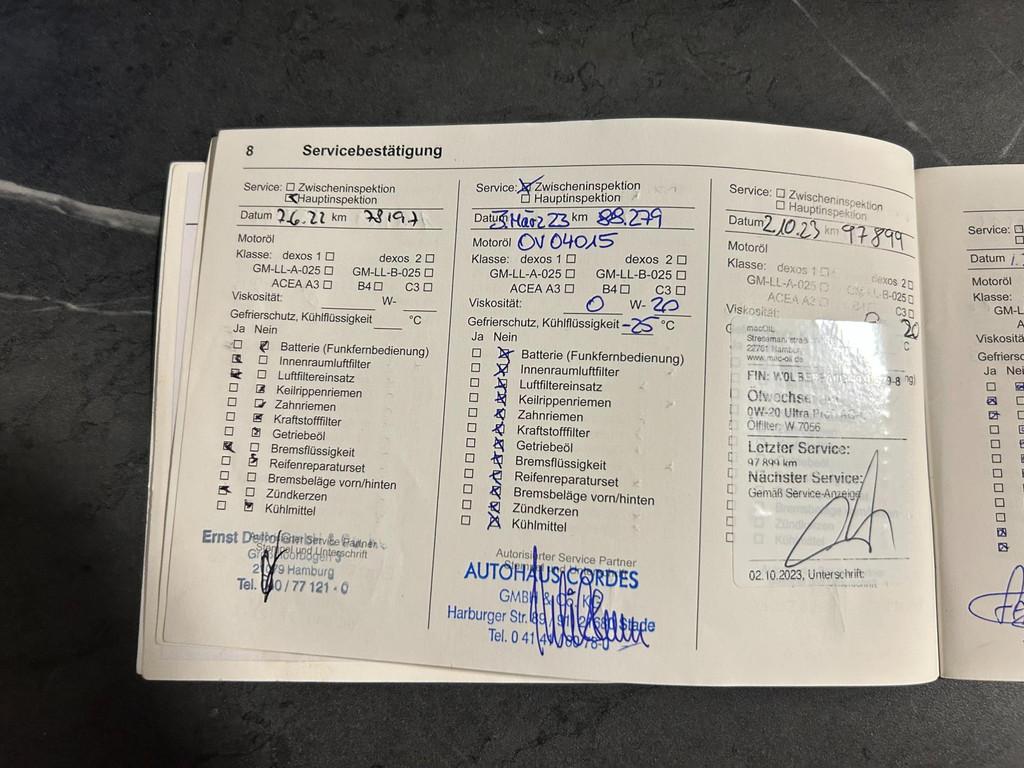 8 Servicebestätigung
Service: Zwischeninspektion
Hauptinspektion
Datum 7.6.22 km 78197
Motoröl
Klasse: dexos 1 dexos 2
GM-LL-A-025 GM-LL-B-025
ACEA A3 B4 C3
Viskosität: W-
Gefrierschutz, Kühlflüssigkeit °C
Ja Nein
Batterie (Funkfernbedienung)
Innenraumluftfilter
Luftfiltereinsatz
Keilrippenriemen
Zahnriemen
Kraftstofffilter
Getriebeöl
Bremsflüssigkeit
Reifenreparaturset
Bremsbeläge vorn/hinten
Zündkerzen
Kühlmittel
Autorisierter Service Partner
Stempel und Unterschrift
Ernst
Hamburg
Tel. 040 / 77 121 - 0
Service: Zwischeninspektion
Hauptinspektion
Datum 3. März 23 km 88.279
Motoröl OV 04015
Klasse: dexos 1 dexos 2
GM-LL-A-025 GM-LL-B-025
ACEA A3 B4 C3
Viskosität: 0 W- 20
Gefrierschutz, Kühlflüssigkeit -25 °C
Ja Nein
Batterie (Funkfernbedienung)
Innenraumluftfilter
Luftfiltereinsatz
Keilrippenriemen
Zahnriemen
Kraftstofffilter
Getriebeöl
Bremsflüssigkeit
Reifenreparaturset
Bremsbeläge vorn/hinten
Zündkerzen
Kühlmittel
Autorisierter Service Partner
AUTOHAUS CORDES
GMBH & CO. KG
Harburger Str. Stade
Tel. 0 41
Service: Zwischeninspektion
Hauptinspektion
Datum 2.10.23 km 97899
Motoröl
Klasse: dexos 1 dexos 2
GM-LL-A-025 GM-LL-B-025
ACEA A3 C3
Viskosität: 0 20
macOIL
22761 Hamburg
www.mac-oil.de
FIN: W0L
Ölwechsel
0W-20 Ultra
Ölfilter: W 7056
Letzter Service:
97 899 km
Nächster Service:
Gemäß Service-Anzeige
Zündkerzen
Kühlmittel
02.10.2023, Unterschrift:
Service:
Datum 1.
Motoröl
Klasse:
Viskosität
Ja